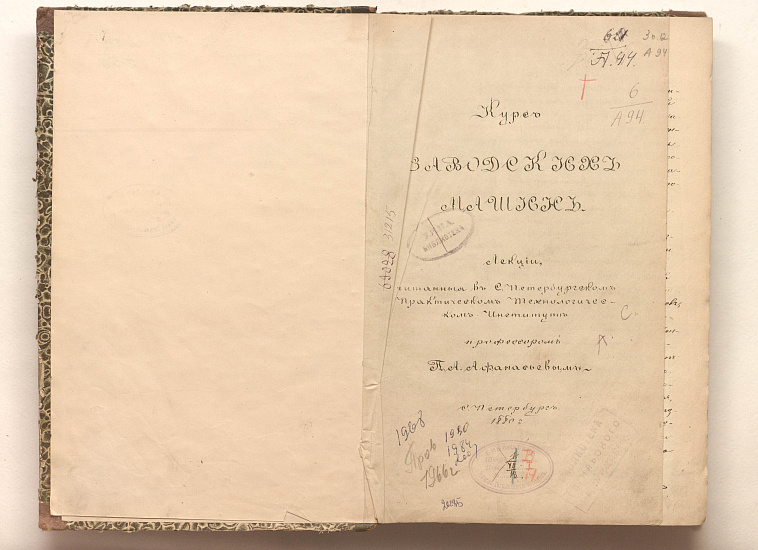 621
А.94.
6
А94.
Курсъ
ЗАВОДСКИХЪ
МАШИНЪ.
БИБЛИОТЕКА
Лекціи,
читанныя въ С. Петербургскомъ
Практическомъ Технологичес-
комъ Институтѣ
профессоромъ
П. А. Афанасьевымъ
С.
С. Петербургъ.
1890 г.
1968
1980
1984
Пров
1966г